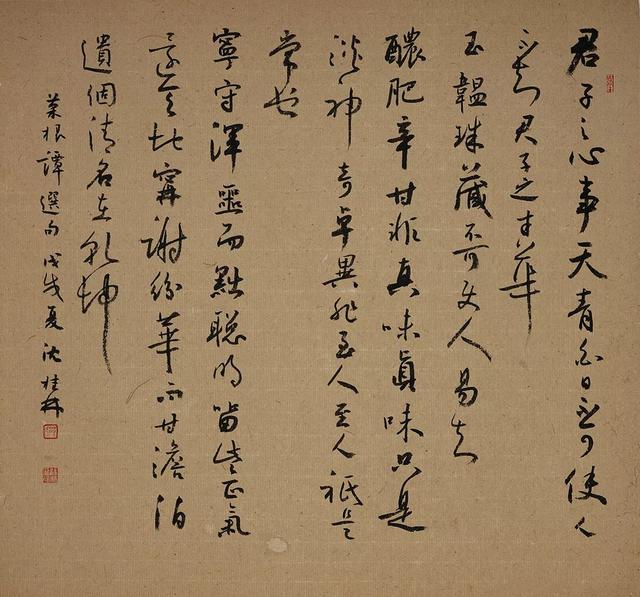 君子之心事天青白日不可使人
不知君子之才華
玉韞珠藏不可使人易知
醲肥辛甘非真味眞味只是
淡神奇卓異非至人至人祇是
常也
寧守渾噩而黜聰明留些正氣
還天地甯謝紛華而甘澹泊
遺個清名在乾坤
菜根譚選句 戊戌夏 沈桂林